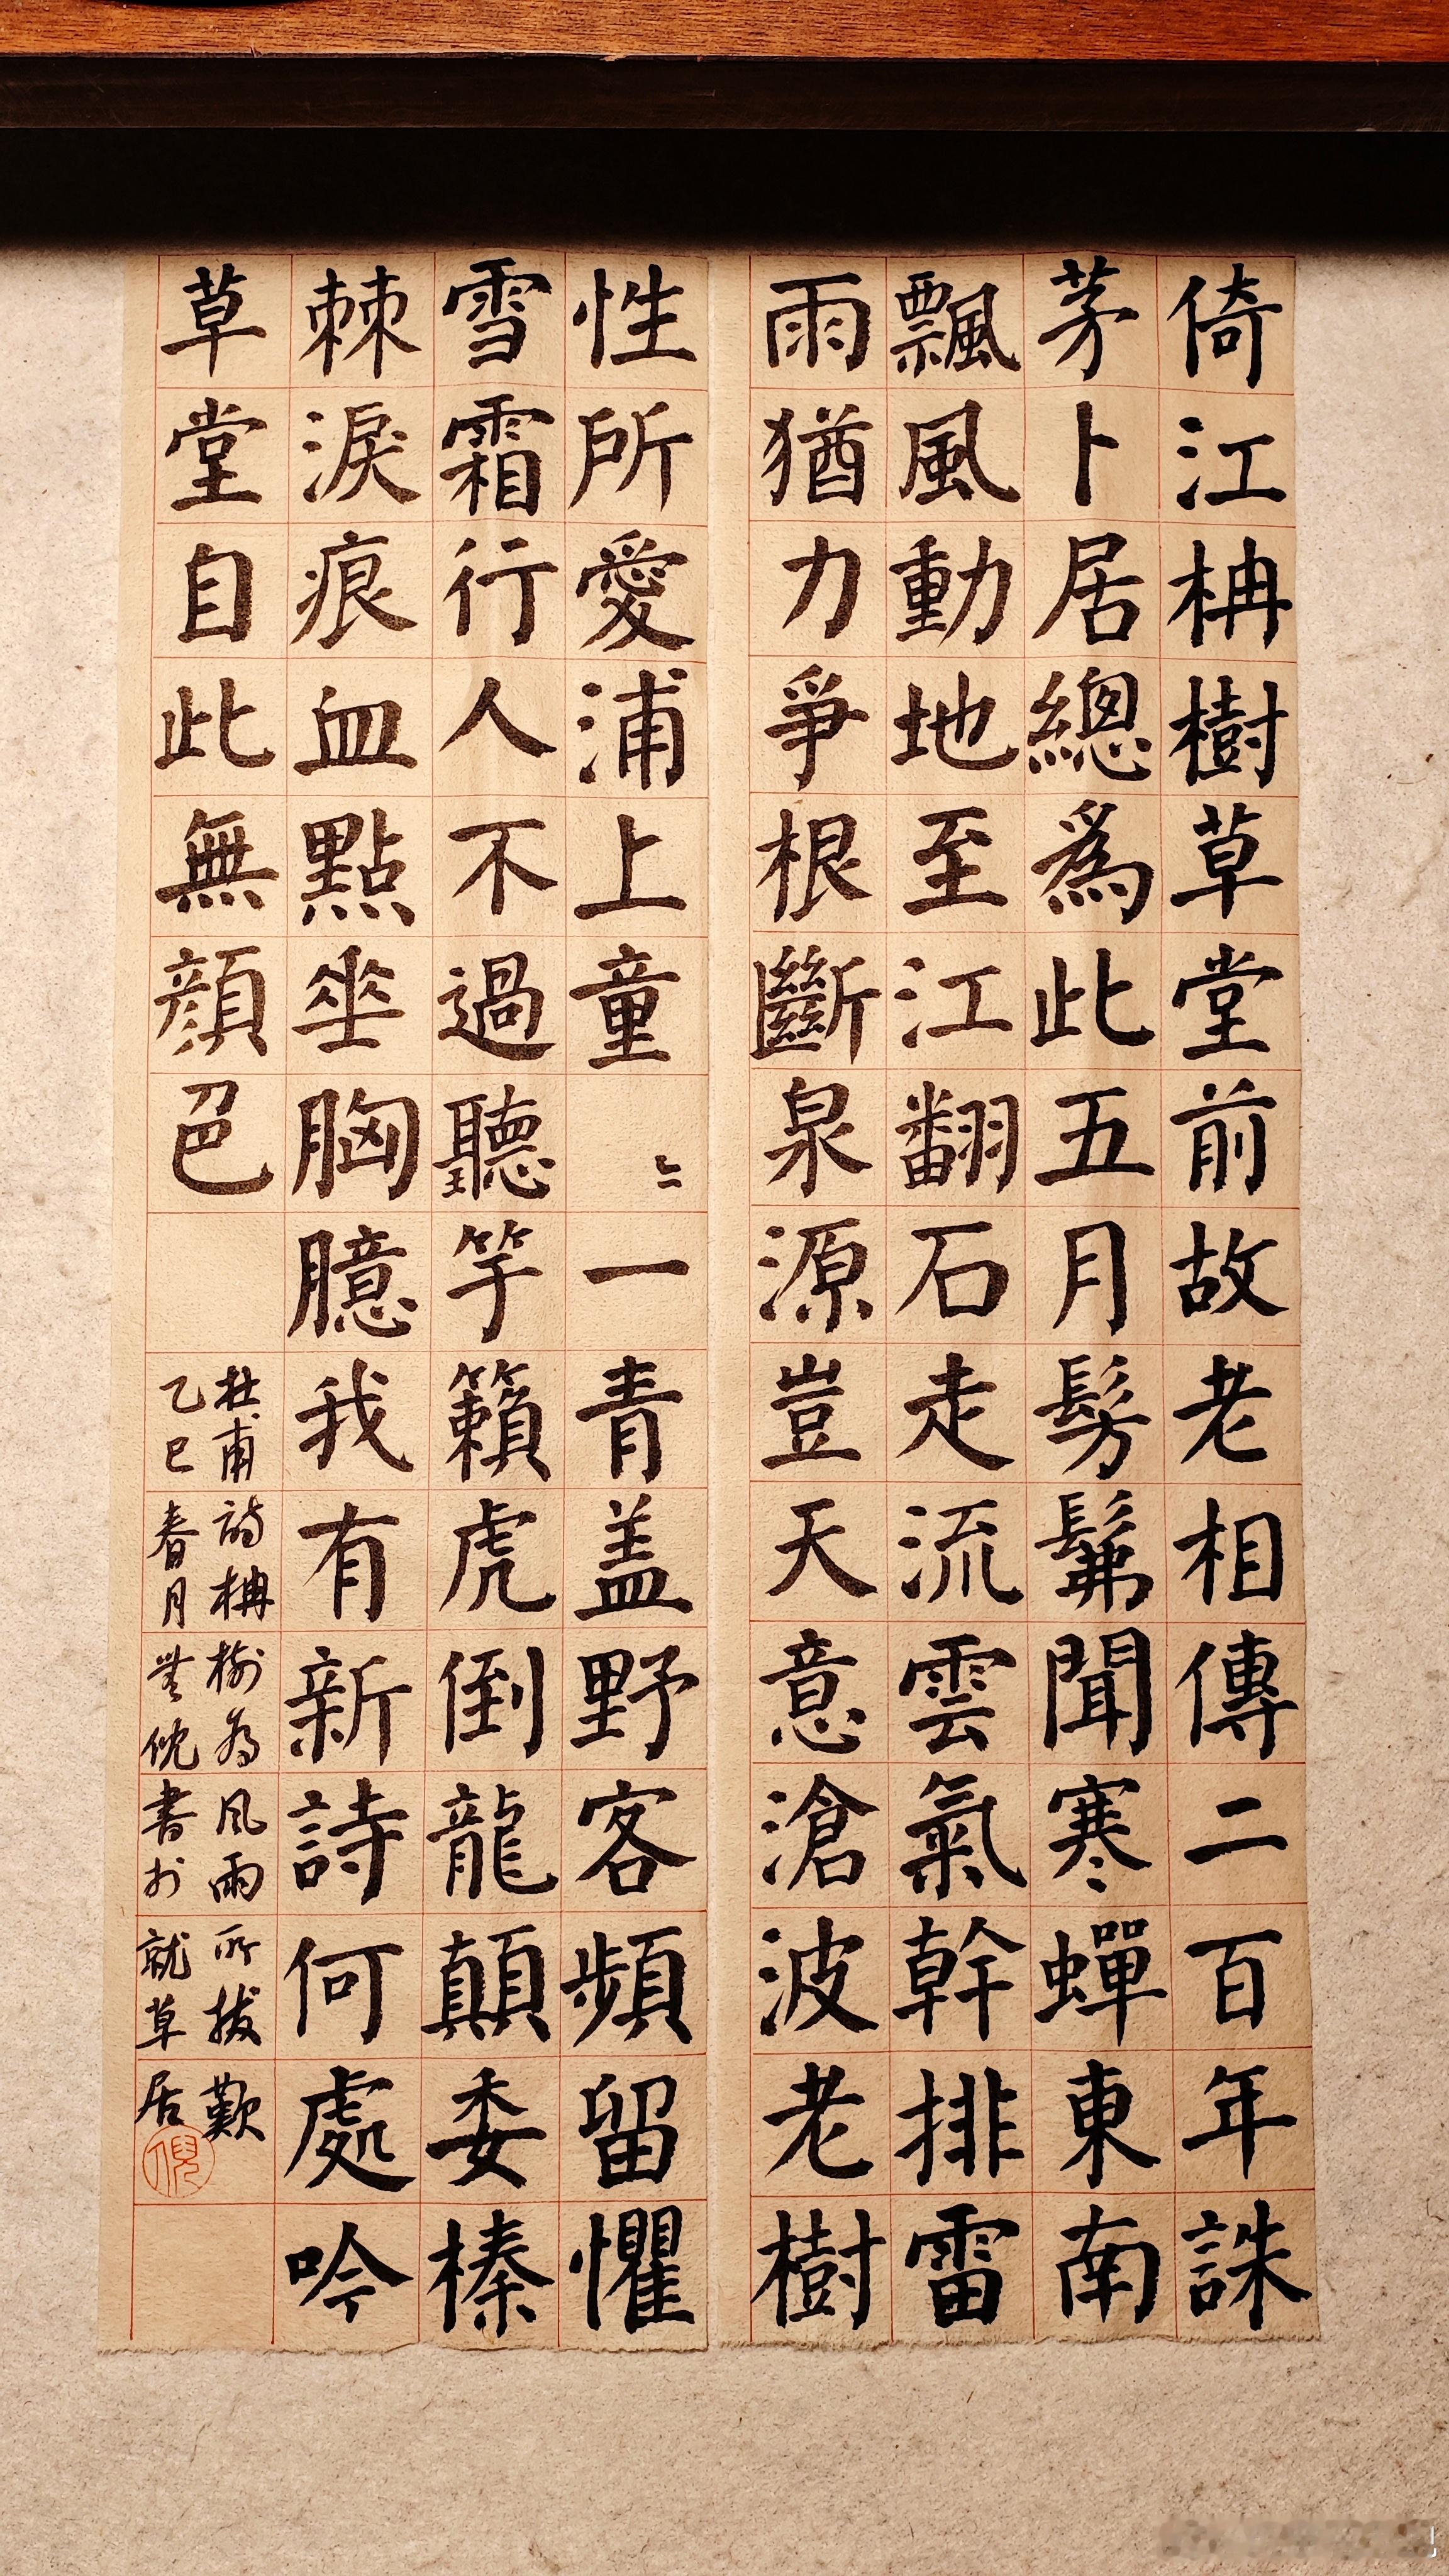 倚江柟樹草堂前故老相傳二百年誅
茅卜居總為此五月髣髴聞寒蟬東南
飄風動地至江翻石走流雲氣幹排雷
雨猶力爭根斷泉源豈天意滄波老樹
性所愛浦上童〻一青盖野客頻留懼
雪霜行人不過聽竽籟虎倒龍顛委榛
棘淚痕血點垂胸臆我有新詩何處吟
草堂自此無顏色
杜甫詩柟樹為風雨所拔歎
乙巳春月無倪書於就草居
倪